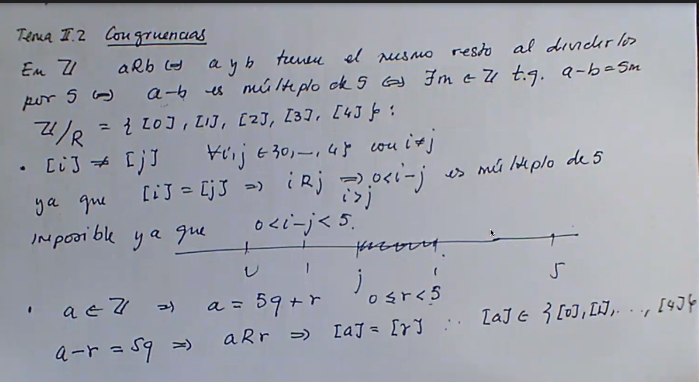 Tema II.2 Congruencias
Em ℤ aRb ⇔ a y b tienen el mismo resto al dividirlos
por 5 ⇔ a-b es múltiplo de 5 ⇔ ∃m ∈ ℤ t.q. a-b=5m
ℤ/R = { [0], [1], [2], [3], [4] } :
• [i] ≠ [j] ∀i,j ∈ {0,...,4} con i≠j
ya que [i] = [j] ⇒ i R j ⇒ 0<i-j es múltiplo de 5
i>j
imposible ya que 0<i-j<5.
0 1 j i 5
• a ∈ ℤ ⇒ a = 5q+r 0≤r<5
a-r=5q ⇒ aRr ⇒ [a]=[r] ∴ [a] ∈ {[0],[1],..., [4]}